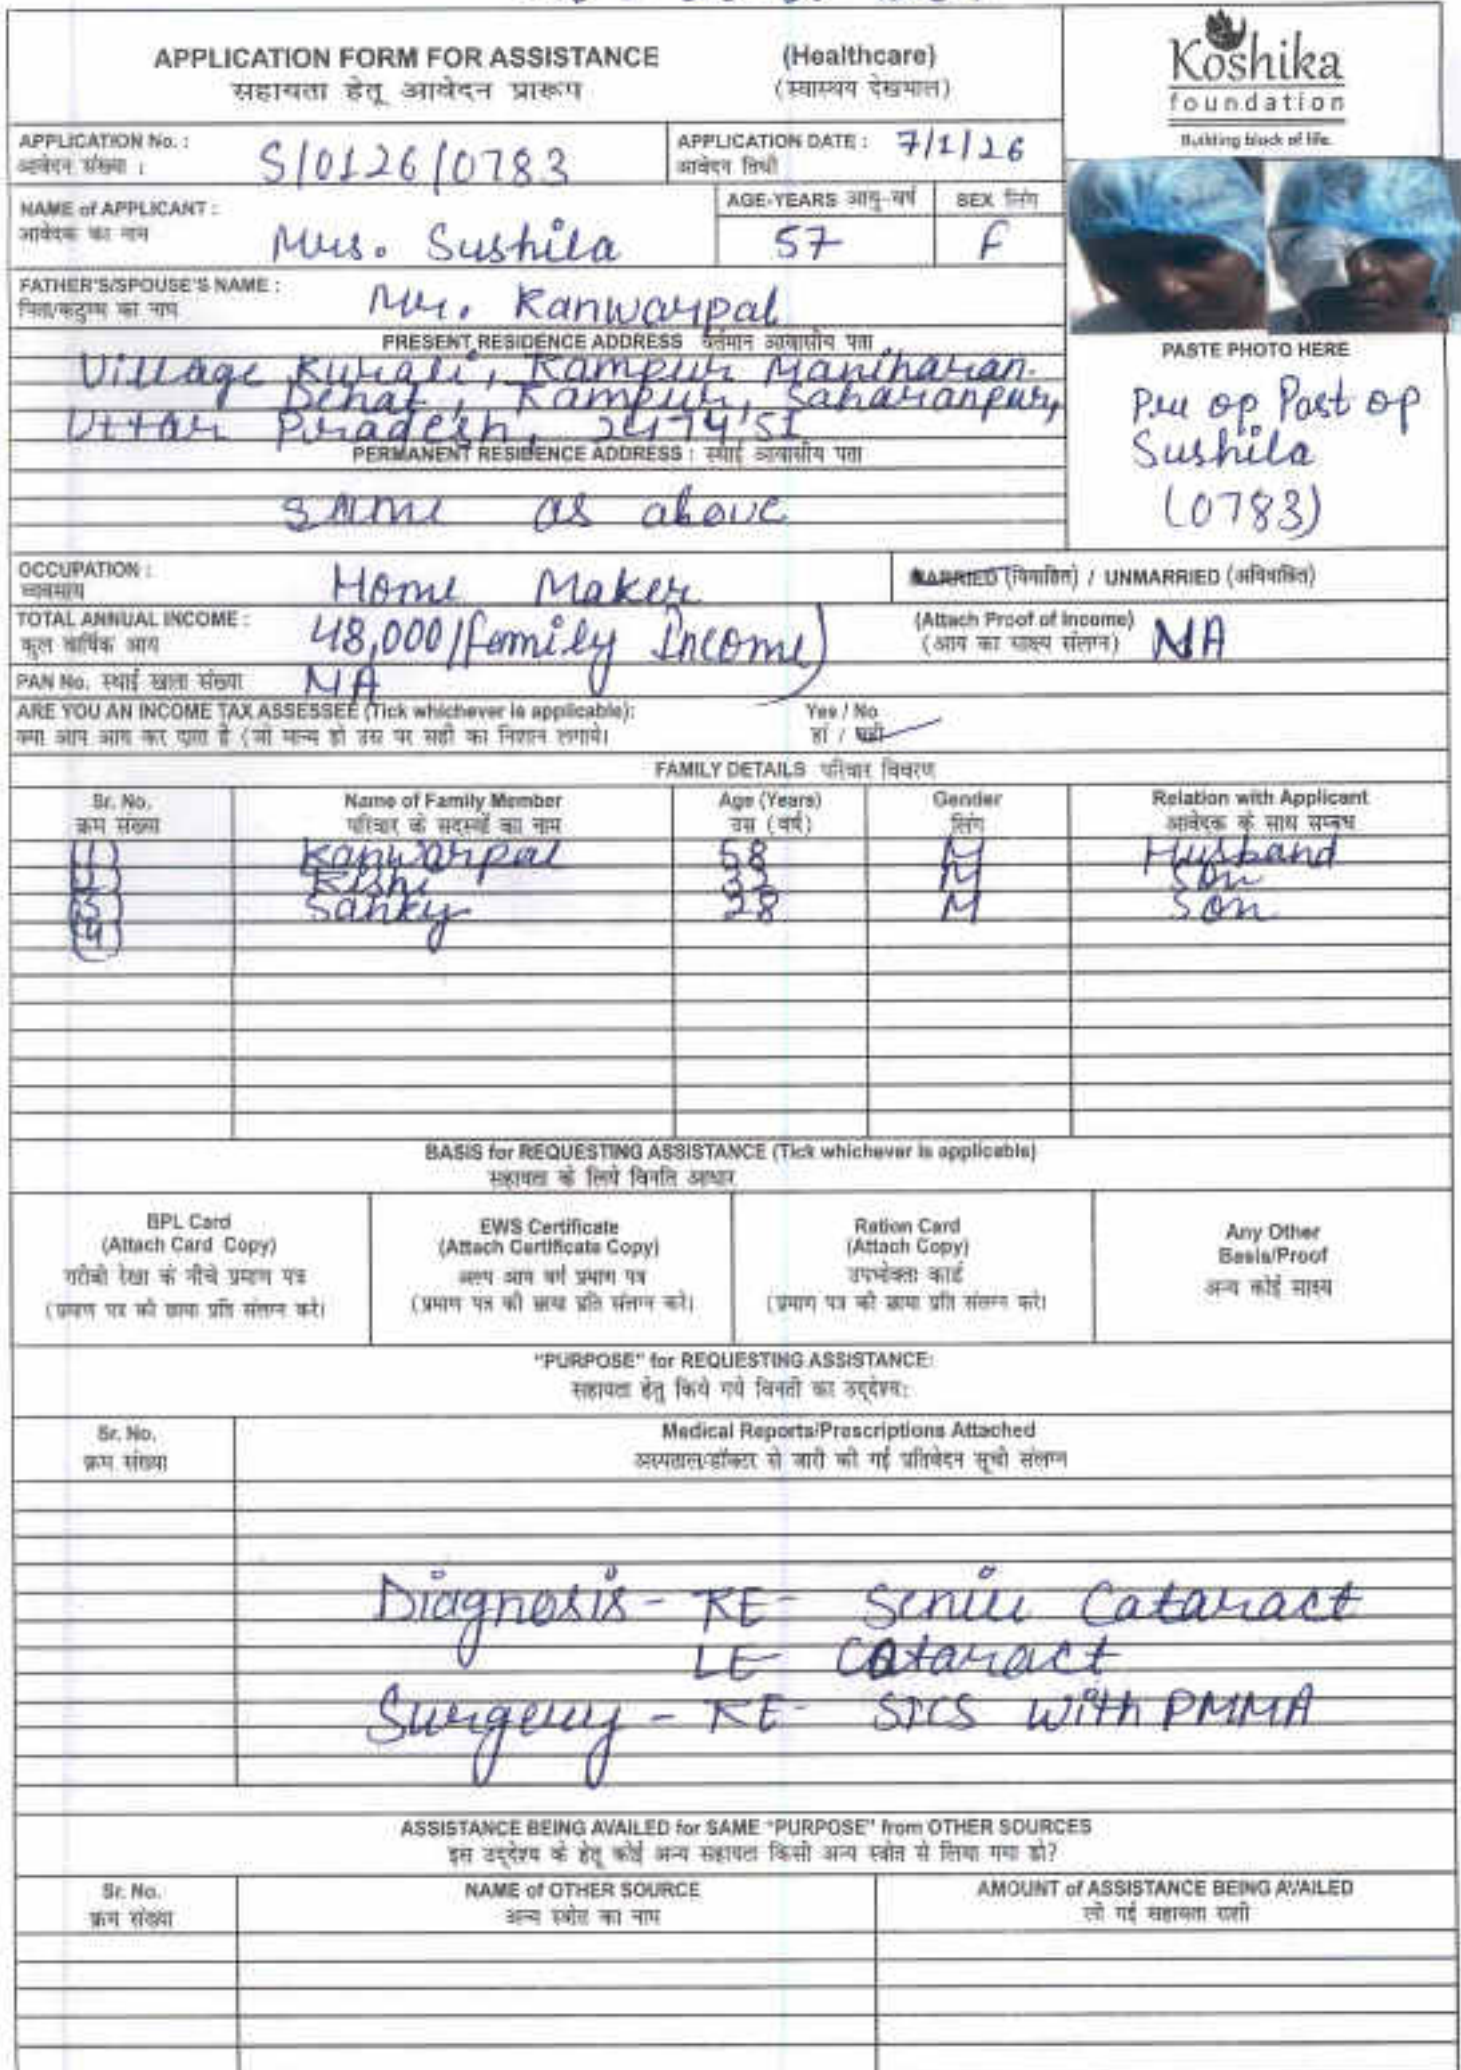 APPLICATION FORM FOR ASSISTANCE (Healthcare)
सहायता हेतू आवेदन प्रारूप (स्वास्थय देखभाल)
Koshika
foundation
Building block of life.
APPLICATION No. : S/0126/0783 APPLICATION DATE : 7/1/26
आवेदन संख्या : आवेदन तिथी
NAME of APPLICANT : Mrs. Sushila AGE-YEARS आयु-वर्ष 57 SEX लिंग F
आवेदक का नाम
FATHER'S/SPOUSE'S NAME : Mr. Kanwarpal
पिता/कटुम्ब का नाम
PRESENT RESIDENCE ADDRESS वर्तमान आवासीय पता
Village Kurali, Rampur Maniharan
Dehat, Rampur, Saharanpur,
Uttar Pradesh, 247451
PERMANENT RESIDENCE ADDRESS : स्थाई आवासीय पता
same as above
PASTE PHOTO HERE
Pre op Post op
Sushila
(0783)
OCCUPATION : Home Maker MARRIED (विवाहित) / UNMARRIED (अविवाहित)
व्यवसाय
TOTAL ANNUAL INCOME : 48,000 (family Income) (Attach Proof of Income) NA
कुल वार्षिक आय (आय का साक्ष्य संलग्न)
PAN No. स्थाई खाता संख्या NA
ARE YOU AN INCOME TAX ASSESSEE (Tick whichever is applicable): Yes / No
क्या आप आय कर दाता है (जो मान्य हो उस पर सही का निशान लगाये। हां / नहीं
FAMILY DETAILS परिवार विवरण
Sr. No. Name of Family Member Age (Years) Gender Relation with Applicant
क्रम संख्या परिवार के सदस्यों का नाम उम्र (वर्ष) लिंग आवेदक के साथ सम्बन्ध
(1) Kanwarpal 58 M Husband
Rishi 32 M Son
(3) Sanky 28 M Son
(4)
BASIS for REQUESTING ASSISTANCE (Tick whichever is applicable)
सहायता के लिये विनति आधार
BPL Card
(Attach Card Copy)
गरीबी रेखा के नीचे प्रमाण पत्र
(प्रमाण पत्र की छाया प्रति संलग्न करे।
EWS Certificate
(Attach Certificate Copy)
अल्प आय वर्ग प्रमाण पत्र
(प्रमाण पत्र की छाया प्रति संलग्न करे।
Ration Card
(Attach Copy)
उपभोक्ता कार्ड
(प्रमाण पत्र की छाया प्रति संलग्न करे।
Any Other
Basis/Proof
अन्य कोई साक्ष्य
"PURPOSE" for REQUESTING ASSISTANCE:
सहायता हेतु किये गये विनती का उद्देश्य:
Sr. No. Medical Reports/Prescriptions Attached
क्रम संख्या अस्पताल/डॉक्टर से जारी की गई प्रतिवेदन सूची संलग्न
Diagnosis - RE - Senile Cataract
LE - Cataract
Surgery - RE - SICS with PMMA
ASSISTANCE BEING AVAILED for SAME "PURPOSE" from OTHER SOURCES
इस उद्देश्य के हेतू कोई अन्य सहायता किसी अन्य स्त्रोत से लिया गया हो?
Sr. No. NAME of OTHER SOURCE AMOUNT of ASSISTANCE BEING AVAILED
क्रम संख्या अन्य स्त्रोत का नाम ली गई सहायता राशी